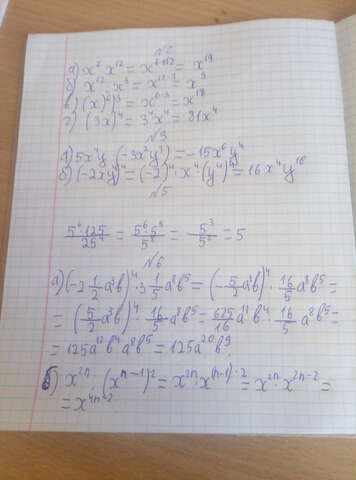 №2
а) x² x¹² = x⁶⁺¹² = x¹⁹
б) x¹² : x³ = x¹²⁻³ = x⁹
в) (x)⁶)³ = x⁶·³ = x¹⁸
г) (3x)⁴ = 3⁴x⁴ = 81x⁴
№3
а) 5x⁴y · (-3x²y³) = -15x⁶y⁴
б) (-2xy⁴)⁴ = (-2)⁴ · x⁴(y⁴)⁴ = 16x⁴y¹⁶
№5
5⁶·125/25⁴ = 5⁶·5³/5⁸ = 5⁹/5⁸ = 5
№6
а) (-2 1/2 a³b)⁴ · 3 1/5 a⁸b⁵ = (-5/2 a³b)⁴ · 16/5 a⁸b⁵ =
= (5/2 a³b)⁴ · 16/5 a⁸b⁵ = 625/16 a¹²b⁴ · 16/5 a⁸b⁵ =
= 125a¹²b⁴a⁸b⁵ = 125a²⁰b⁹.
б) x²ⁿ · (xⁿ⁻¹)² = x²ⁿ · x⁽ⁿ⁻¹⁾·² = x²ⁿ · x²ⁿ⁻² =
= x⁴ⁿ⁻²